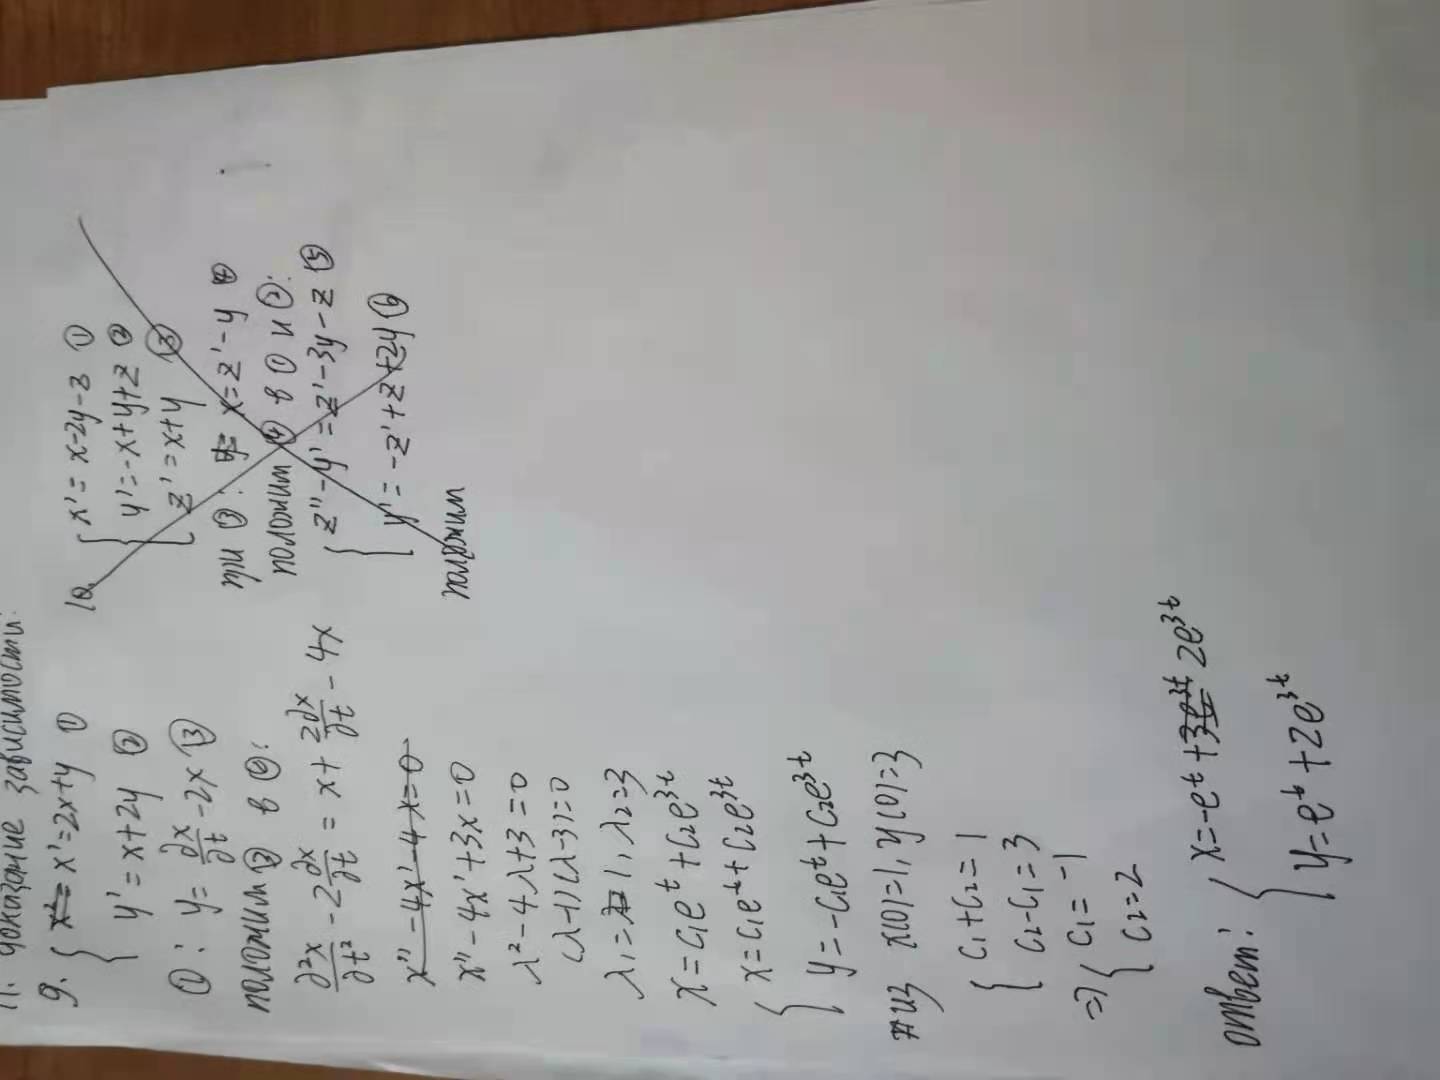 11. доказание зависимости:
9. { x' = 2x+y ①
y' = x+2y ②
①: y = ∂x/∂t - 2x ③
положим ③ в ②:
∂²x/∂t² - 2∂x/∂t = x + 2∂x/∂t - 4x
x'' - 4x' - 4x = 0
x'' - 4x' + 3x = 0
λ² - 4λ + 3 = 0
(λ-1)(λ-3) = 0
λ₁ = 1, λ₂ = 3
x = c₁e^t + c₂e^{3t}
{ x = c₁e^t + c₂e^{3t}
y = -c₁e^t + c₂e^{3t}
из x(0)=1, y(0)=3
{ c₁+c₂ = 1
c₂-c₁ = 3
⇒ { c₁ = -1
c₂ = 2
ответ: { x = -e^t + 3e^{3t} 2e^{3t}
y = e^t + 2e^{3t}
10. { x' = x-2y-z ①
y' = -x+y+z ②
z' = x+y ③
при ③: x = z'-y ④
положим ④ в ① и ②:
{ z''-y' = z'-3y-z ⑤
y' = -z'+z+2y ⑥
положим